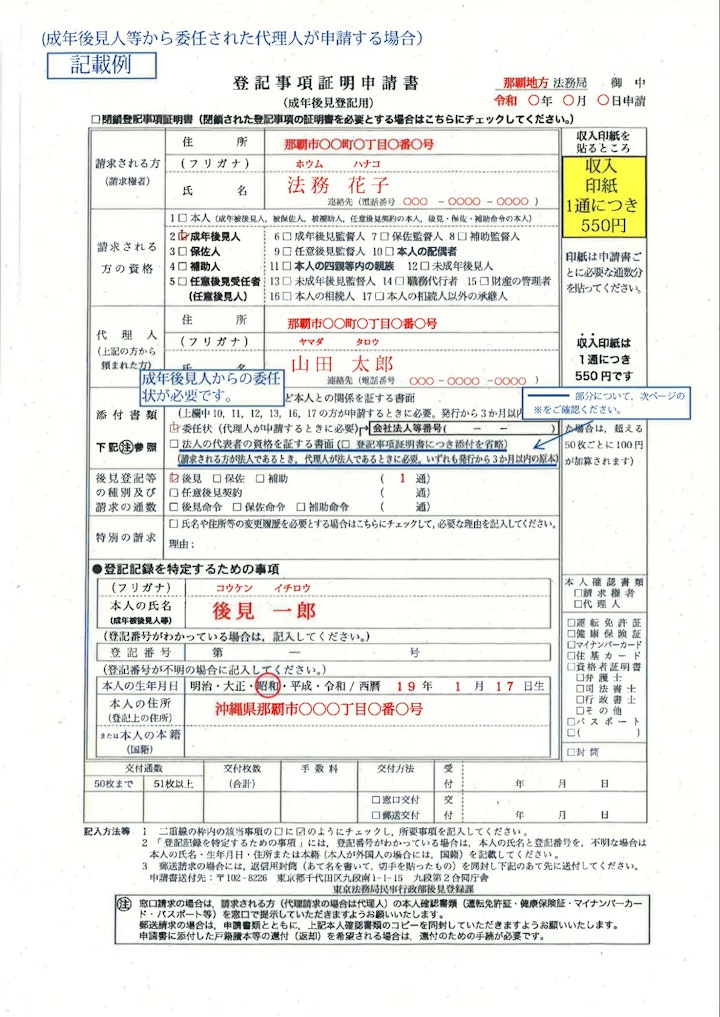 (成年後見人等から委任された代理人が申請する場合)
記載例
登記事項証明申請書
(成年後見登記用)
那覇地方 法務局 御中
令和 〇年 〇月 〇日申請
□閉鎖登記事項証明書 (閉鎖された登記事項の証明書を必要とする場合はこちらにチェックしてください。)
請求される方
(請求権者)
住所
那覇市〇〇町〇丁目〇番〇号
(フリガナ)
ホウム ハナコ
氏名
法務 花子
連絡先 (電話番号 〇〇〇 - 〇〇〇〇 - 〇〇〇〇 )
収入印紙を
貼るところ
収入
印紙
1通につき
550円
請求される
方の資格
1□本人 (成年被後見人、被保佐人、被補助人、任意後見契約の本人、後見・保佐・補助命令の本人)
2☑成年後見人 6□成年後見監督人 7□保佐監督人 8□補助監督人
3□保佐人 9□任意後見監督人 10□本人の配偶者
4□補助人 11□本人の四親等内の親族 12□未成年後見人
5□任意後見受任者 13□未成年後見監督人 14□職務代行者 15□財産の管理者
(任意後見人) 16□本人の相続人 17□本人の相続人以外の承継人
印紙は申請書ご
とに必要な通数分
を貼ってください。
代理人
(上記の方から
頼まれた方)
住所
那覇市〇〇町〇丁目〇番〇号
(フリガナ)
ヤマダ タロウ
山田 太郎
連絡先 (電話番号 〇〇〇 - 〇〇〇〇 - 〇〇〇〇 )
収入印紙は
1通につき
550円です
成年後見人からの委任
状が必要です。
部分について、次ページの
※をご確認ください。
添付書類
下記㊟参照
ど本人との関係を証する書面
(上欄中10, 11, 12, 13, 16, 17の方が申請するときに必要。発行から3か月以内
☑委任状 (代理人が申請するときに必要)
会社法人等番号( - - )
□法人の代表者の資格を証する書面 (□ 登記事項証明書につき添付を省略)
(請求される方が法人であるとき, 代理人が法人であるときに必要。いずれも発行から3か月以内の原本)
た場合は, 超える
50枚ごとに100円
が加算されます)
後見登記等
の種別及び
請求の通数
☑後見 □保佐 □補助 ( 1 通)
□任意後見契約 ( 通)
□後見命令 □保佐命令 □補助命令 ( 通)
特別の請求
□氏名や住所等の変更履歴を必要とする場合はこちらにチェックして, 必要な理由を記入してください。
理由:
●登記記録を特定するための事項
(フリガナ)
コウケン イチロウ
本人の氏名
(成年被後見人等)
後見 一郎
(登記番号がわかっている場合は, 記入してください。)
登記番号 第 ― 号
(登記番号が不明の場合に記入してください。)
本人の生年月日 明治・大正・昭和・平成・令和/西暦 19年 1月 17日生
本人の住所
(登記上の住所)
沖縄県那覇市〇〇〇丁目〇番〇号
または本人の本籍
(国籍)
本人確認書類
□請求権者
□代理人
□運転免許証
□健康保険証
□マイナンバーカード
□住基カード
□資格者証明書
□弁護士
□司法書士
□行政書士
□その他
□パスポート
□( )
□封筒
交付通数 交付枚数 手数料 交付方法 受付 年 月 日
50枚まで 51枚以上 (合計)
□窓口交付
□郵送交付
交付 年 月 日
記入方法等 1 二重線の枠内の該当事項の□に☑のようにチェックし, 所要事項を記入してください。
2 「登記記録を特定するための事項」には, 登記番号がわかっている場合は, 本人の氏名と登記番号を, 不明な場合は
本人の氏名・生年月日・住所または本籍 (本人が外国人の場合には, 国籍) を記載してください。
3 郵送請求の場合には, 返信用封筒 (あて名を書いて, 切手を貼ったもの) を同封し下記のあて先に送付してください。
申請書送付先: 〒102-8226 東京都千代田区九段南1-1-15 九段第2合同庁舎
東京法務局民事行政部後見登録課
㊟ 窓口請求の場合は, 請求される方 (代理請求の場合は代理人) の本人確認書類 (運転免許証・健康保険証・マイナンバーカー
ド・パスポート等) を窓口で提示していただきますようお願いいたします。
郵送請求の場合は, 申請書類とともに, 上記本人確認書類のコピーを同封していただきますようお願いいたします。
申請書に添付した戸籍謄本等の還付 (返却) を希望される場合は, 還付のための手続が必要です。